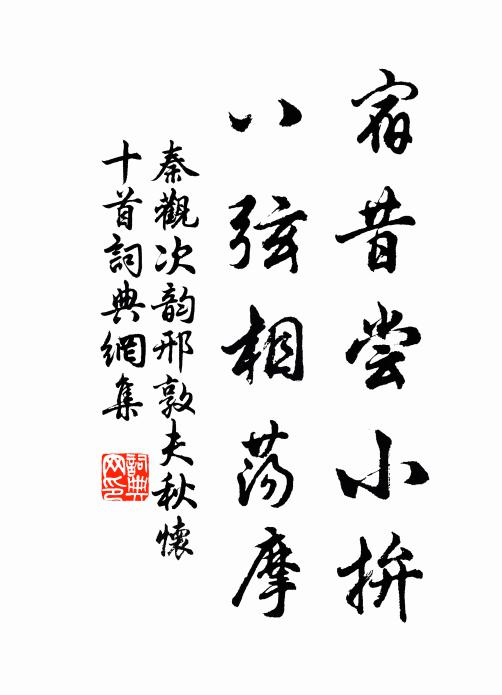 宿昔尝小拚
八弦相荡摩
秦觀次韵邢敦夫秋懷
十首詞典網集
詞典
网印